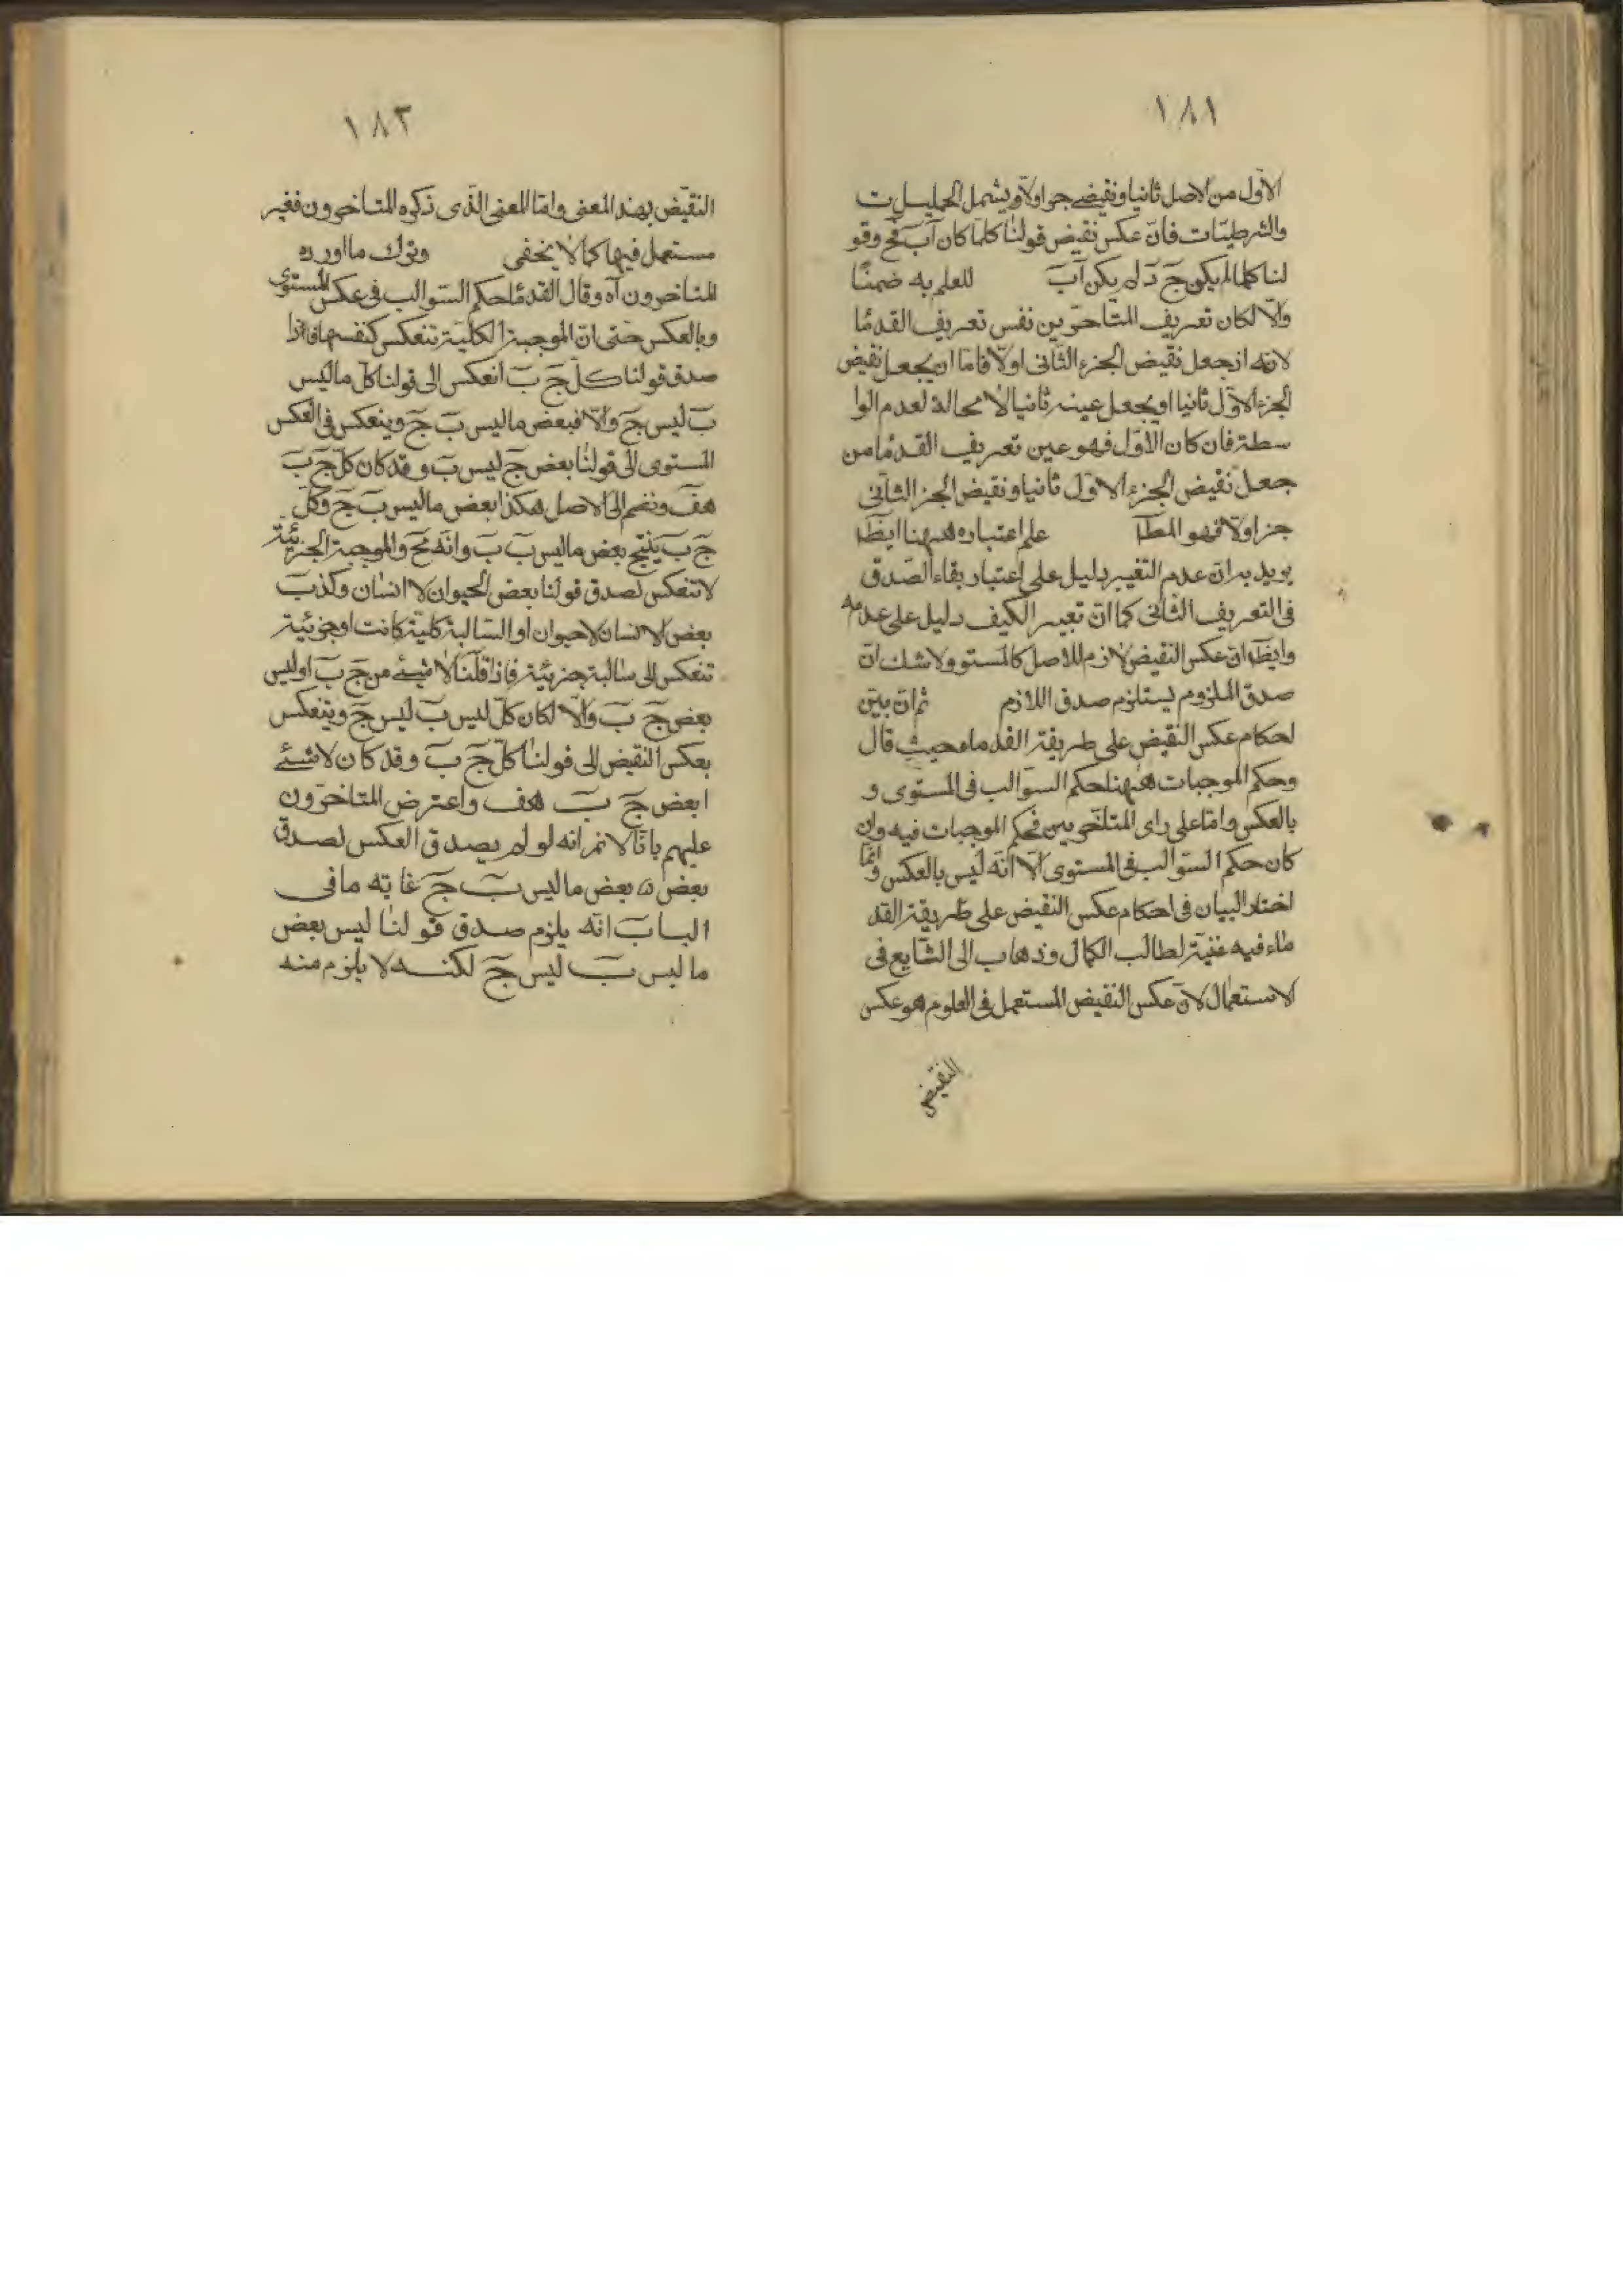 ١٨١
الاول من الاصل ثانيا ونقيضه جزا اولا ويشمل الحمليات
والشرطيات فان عكس نقيض قولنا كلما كان آب فج وقو
لنا كلما لم يكن ج د لم يكن آب للعلم به ضمنا
والا لكان تعريف المتاخرين نفس تعريف القدما
لانه اذ جعل نقيض الجزء الثانى اولا فاما ان يجعل نقيض
الجزء الاول ثانيا او يجعل عينه ثانيا لا محالة لعدم الوا
سطة فان كان الاول فهو عين تعريف القدما من
جعل نقيض الجزء الاول ثانيا ونقيض الجز الثانى
جزا ولا فهو المطا علم اعتباره ههنا ايضا
يريد به ان عدم التغيير دليل على اعتبار بقاء الصدق
فى التعريف الثانى كما ان تعيير الكيف دليل على عدمه
وايضا ان عكس النقيض لازم للاصل كالمستو ولا شك ان
صدق الملزوم يستلزم صدق اللازم ثم ان بين
احكام عكس النقيض على طريقة القدماء حيث قال
وحكم الموجبات ههنا حكم السوالب فى المستوى و
بالعكس واما على راى المتاخرين فحكم الموجبات فيه وان
كان حكم السوالب فى المستوى الا انه ليس بالعكس وانما
اختار البيان فى احكام عكس النقيض على طريقة القد
ماء فيه غنية لطالب الكمال وذهاب الى الشايع فى
الاستعمال لان عكس النقيض المستعمل فى العلوم هو عكس
النقيض
١٨٢
النقيض بهذ المعنى واما المعنى الذى ذكره المتاخرون فغير
مستعمل فيها كما لا يخفى وترك ما اورده
المتاخرون آه وقال القدما حكم السوالب فى عكس المستوى
وبالعكس حتى ان الموجبة الكلية تنعكس كنفسها فاذا
صدق قولنا كل ج ب انعكس الى قولنا كل ما ليس
ب ليس ج والا فبعض ما ليس ب ج وينعكس فى العكس
المستوى الى قولنا بعض ج ليس ب وقد كان كل ج ب
هف ونضم الى الاصل هكذا بعض ما ليس ب ج وكل
ج ب ينتج بعض ما ليس ب ب وانه مح والموجبة الجزئية
لا تنعكس لصدق قولنا بعض الحيوان لا انسان وكذب
بعض الانسان لا حيوان او السالبة كلية كانت او جزئية
تنعكس الى سالبة جزئية فاذا قلنا لا شئ من ج ب او ليس
بعض ج ب والا لكان كل ليس ب ليس ج وينعكس
بعكس النقيض الى قولنا كل ج ب وقد كان لا شئ
ابعض ج ب هف واعترض المتاخرون
عليهم بانا لا نم انه لو لم يصدق العكس لصدق
بعض بعض ما ليس ب ج غايته ما فى
الباب انه يلزم صدق قولنا ليس بعض
ما ليس ب ليس ج لكنه لا يلزم منه